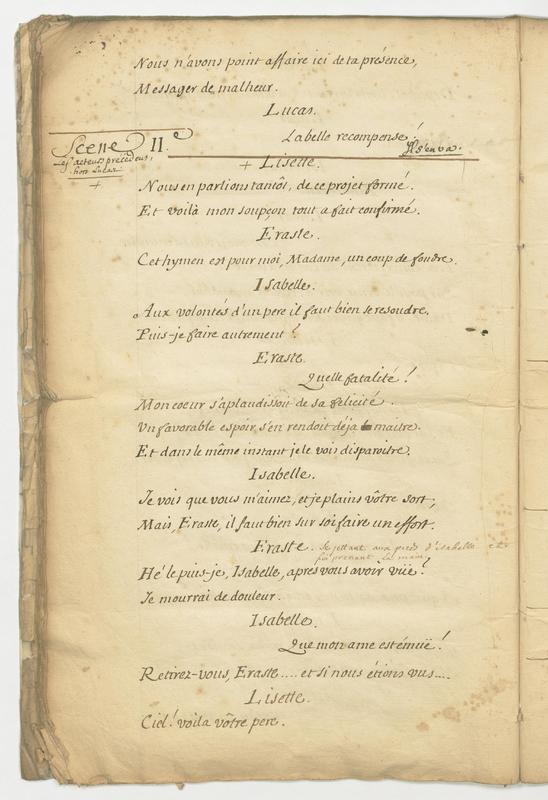 Nous n'avons point affaire ici de ta présence,
Messager de malheur.
Lucas.
La belle recompense!
Il s'en va.
Scene II.e
Les acteurs précédens,
hors Lucas.
+
+ Lisette.
Nous en parlions tantôt, de ce projet formé.
Et voilà mon soupçon tout a fait confirmé.
Eraste.
Cet hymen est pour moi, Madame, un coup de foudre.
Isabelle.
Aux volontés d'un pere il faut bien se resoudre.
Puis-je faire autrement?
Eraste.
Quelle fatalité!
Mon coeur s'aplaudissoit de sa felicité.
Un favorable espoir s'en rendoit déja maitre.
Et dans le même instant je le vois disparoitre.
Isabelle.
Je vois que vous m'aimez, et je plains vôtre sort;
Mais, Eraste, il faut bien sur soi faire un effort.
Eraste. Se jettant aux pieds d'isabelle et
lui prenant la main
Hé le puis-je, Isabelle, apres vous avoir vüe?
Je mourrai de douleur.
Isabelle.
Que mon ame est émuë!
Retirez-vous, Eraste .... et si nous étions vus....
Lisette.
Ciel! voila vôtre pere.